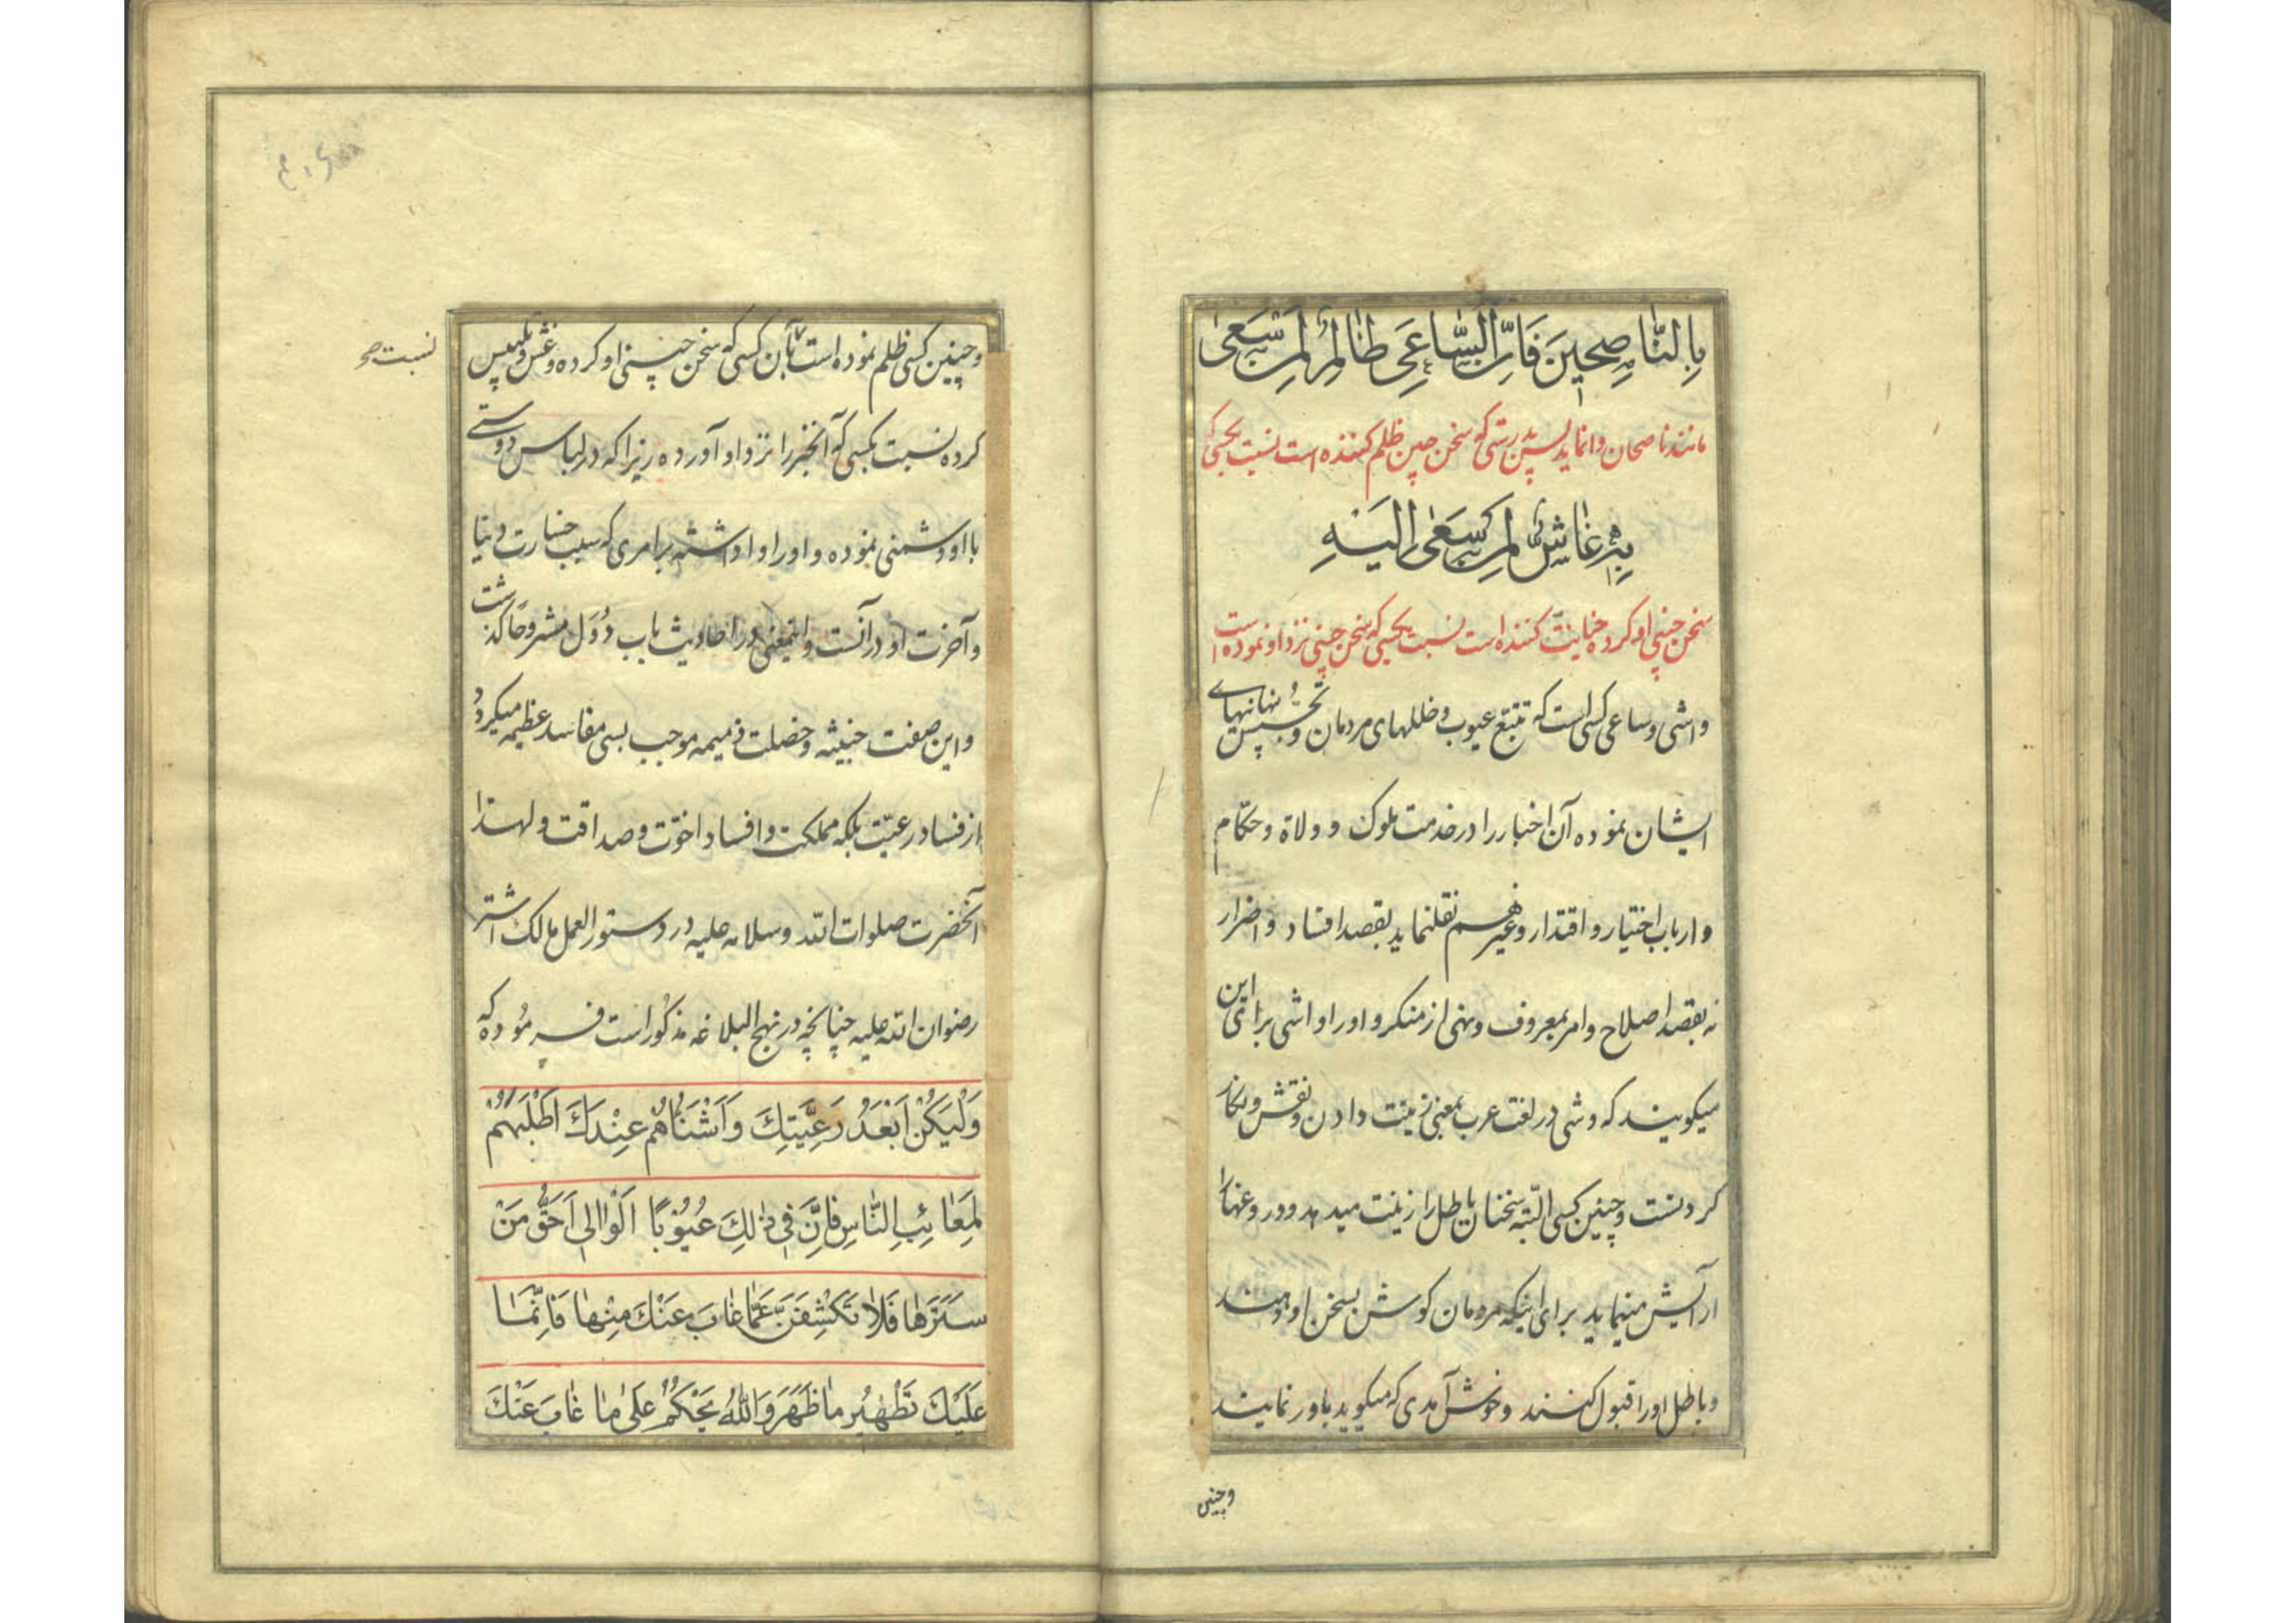 بِالنَّاصِحینَ فَاِنَّ السَّاعِیَ ظالِمٌ لِمَنْ سَعیٰ
مانند ناصحان وانماید پس بدرستی که سخن چین ظلم کننده است نسبت بکسی که
بِهِ غاشٌّ لِمَنْ سَعیٰ اِلَیْهِ
سخن چینی او کرده خیانت کننده است نسبت بکسی که سخن چینی نزد او نموده است
واشی و ساعی کسی است که تتبّع عیوب و خللهای مردمان و تجسّس پنهانیهای
ایشان نموده آن اخبار را در خدمت ملوک و ولاة و حکّام
و ارباب اختیار و اقتدار و غیرهم نقلنماید بقصد افساد و اضرار
نه بقصد اصلاح و امر بمعروف و نهی از منکر و او را واشی برای این
میکویند که وشی در لغت عرب بمعنی زینت دادن و نقش و نکار
کردنست و چنین کسی البتّه سخنان باطل را زینت میدهد و دروغها را
آرایش مینماید برای اینکه مردمان کوش بسخن او دهند
و باطل او را قبول کنند و خوش آمدی که میکوید باور نمایند
وچنین
وچنین کسی ظلم نموده است بآن کسی که سخن چینی او کرده و غش و تلبیس
نسبت صح
کرده نسبت بکسی که آنخبر را نزد او آورده زیرا که در لباس دوستی
با او دشمنی نموده و او را واداشته بر امری که سبب خسارت دنیا
و آخرت او در آنست و اینمعنی در احادیث باب دُوَل مشروحا کذشت
و این صفت خبیثه و خصلت ذمیمه موجب بسی مفاسد عظیمه میکردد
از فساد رعیّت بلکه مملکت و افساد اخوّت و صداقت و لهذا
آنحضرت صلوات الله وسلامه علیه در دستور العمل مالک اشتر
رضوان الله علیه چنانچه در نهج البلاغه مذکور است فرموده که
وَلْیَکُنْ اَبْعَدُ رَعِیَّتِكَ وَاَشْنَاُهُمْ عِنْدَكَ اَطْلَبَهُمْ
لِمَعائِبِ النّاسِ فَاِنَّ فی ذٰلِكَ عُیُوْبًا اَلْوالی اَحَقُّ مَنْ
سَتَرَها فَلا تَکْشِفَنَّ عَمّا غابَ عَنْكَ مِنْها فَاِنَّمَا
عَلَیْكَ تَطْهیرُ ما ظَهَرَ وَاللهُ یَحْکُمُ عَلیٰ ما غابَ عَنْكَ